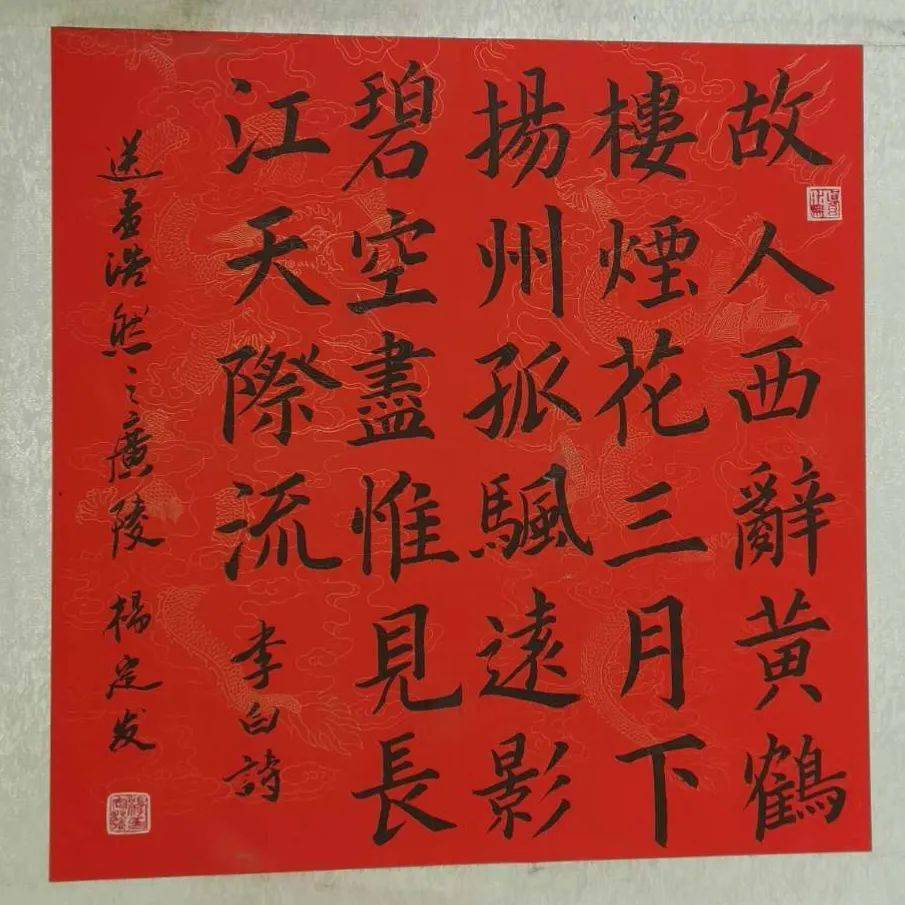 故人西辭黄鶴
樓煙花三月下
揚州孤颿遠影
碧空盡惟見長
江天際流 李白詩
送孟浩然之廣陵 楊定发